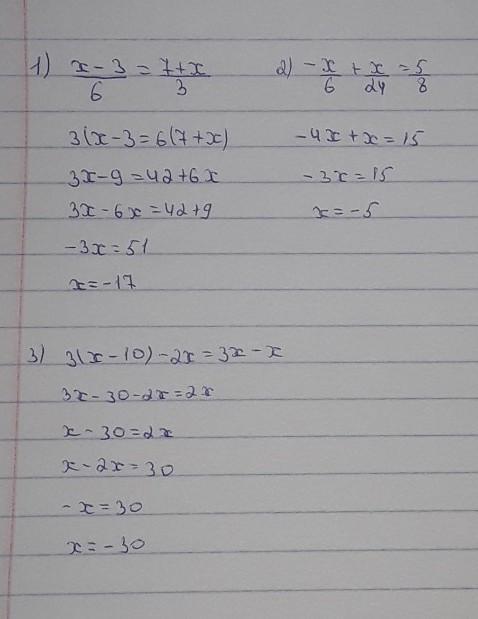 1) x - 3 / 6 = 7 + x / 3
3(x - 3 = 6(7 + x)
3x - 9 = 42 + 6x
3x - 6x = 42 + 9
-3x = 51
x = -17
2) -x/6 + x/24 = 5/8
-4x + x = 15
-3x = 15
x = -5
3) 3(x - 10) - 2x = 3x - x
3x - 30 - 2x = 2x
x - 30 = 2x
x - 2x = 30
-x = 30
x = -30